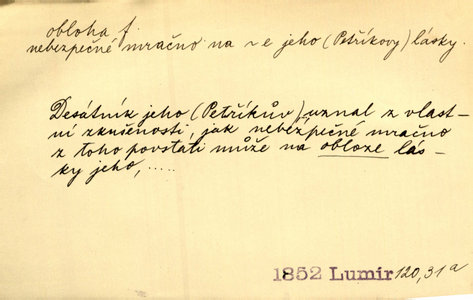 obloha f.
nebezpečné mračno na ~ e jeho (Petříkovy) lásky.
Desátník jeho (Petříkův) uznal z vlast-
ní zkušenosti, jak nebezpečné mračno
z toho povstati může na obloze lás-
ky jeho, .....
1852 Lumír 120,31a